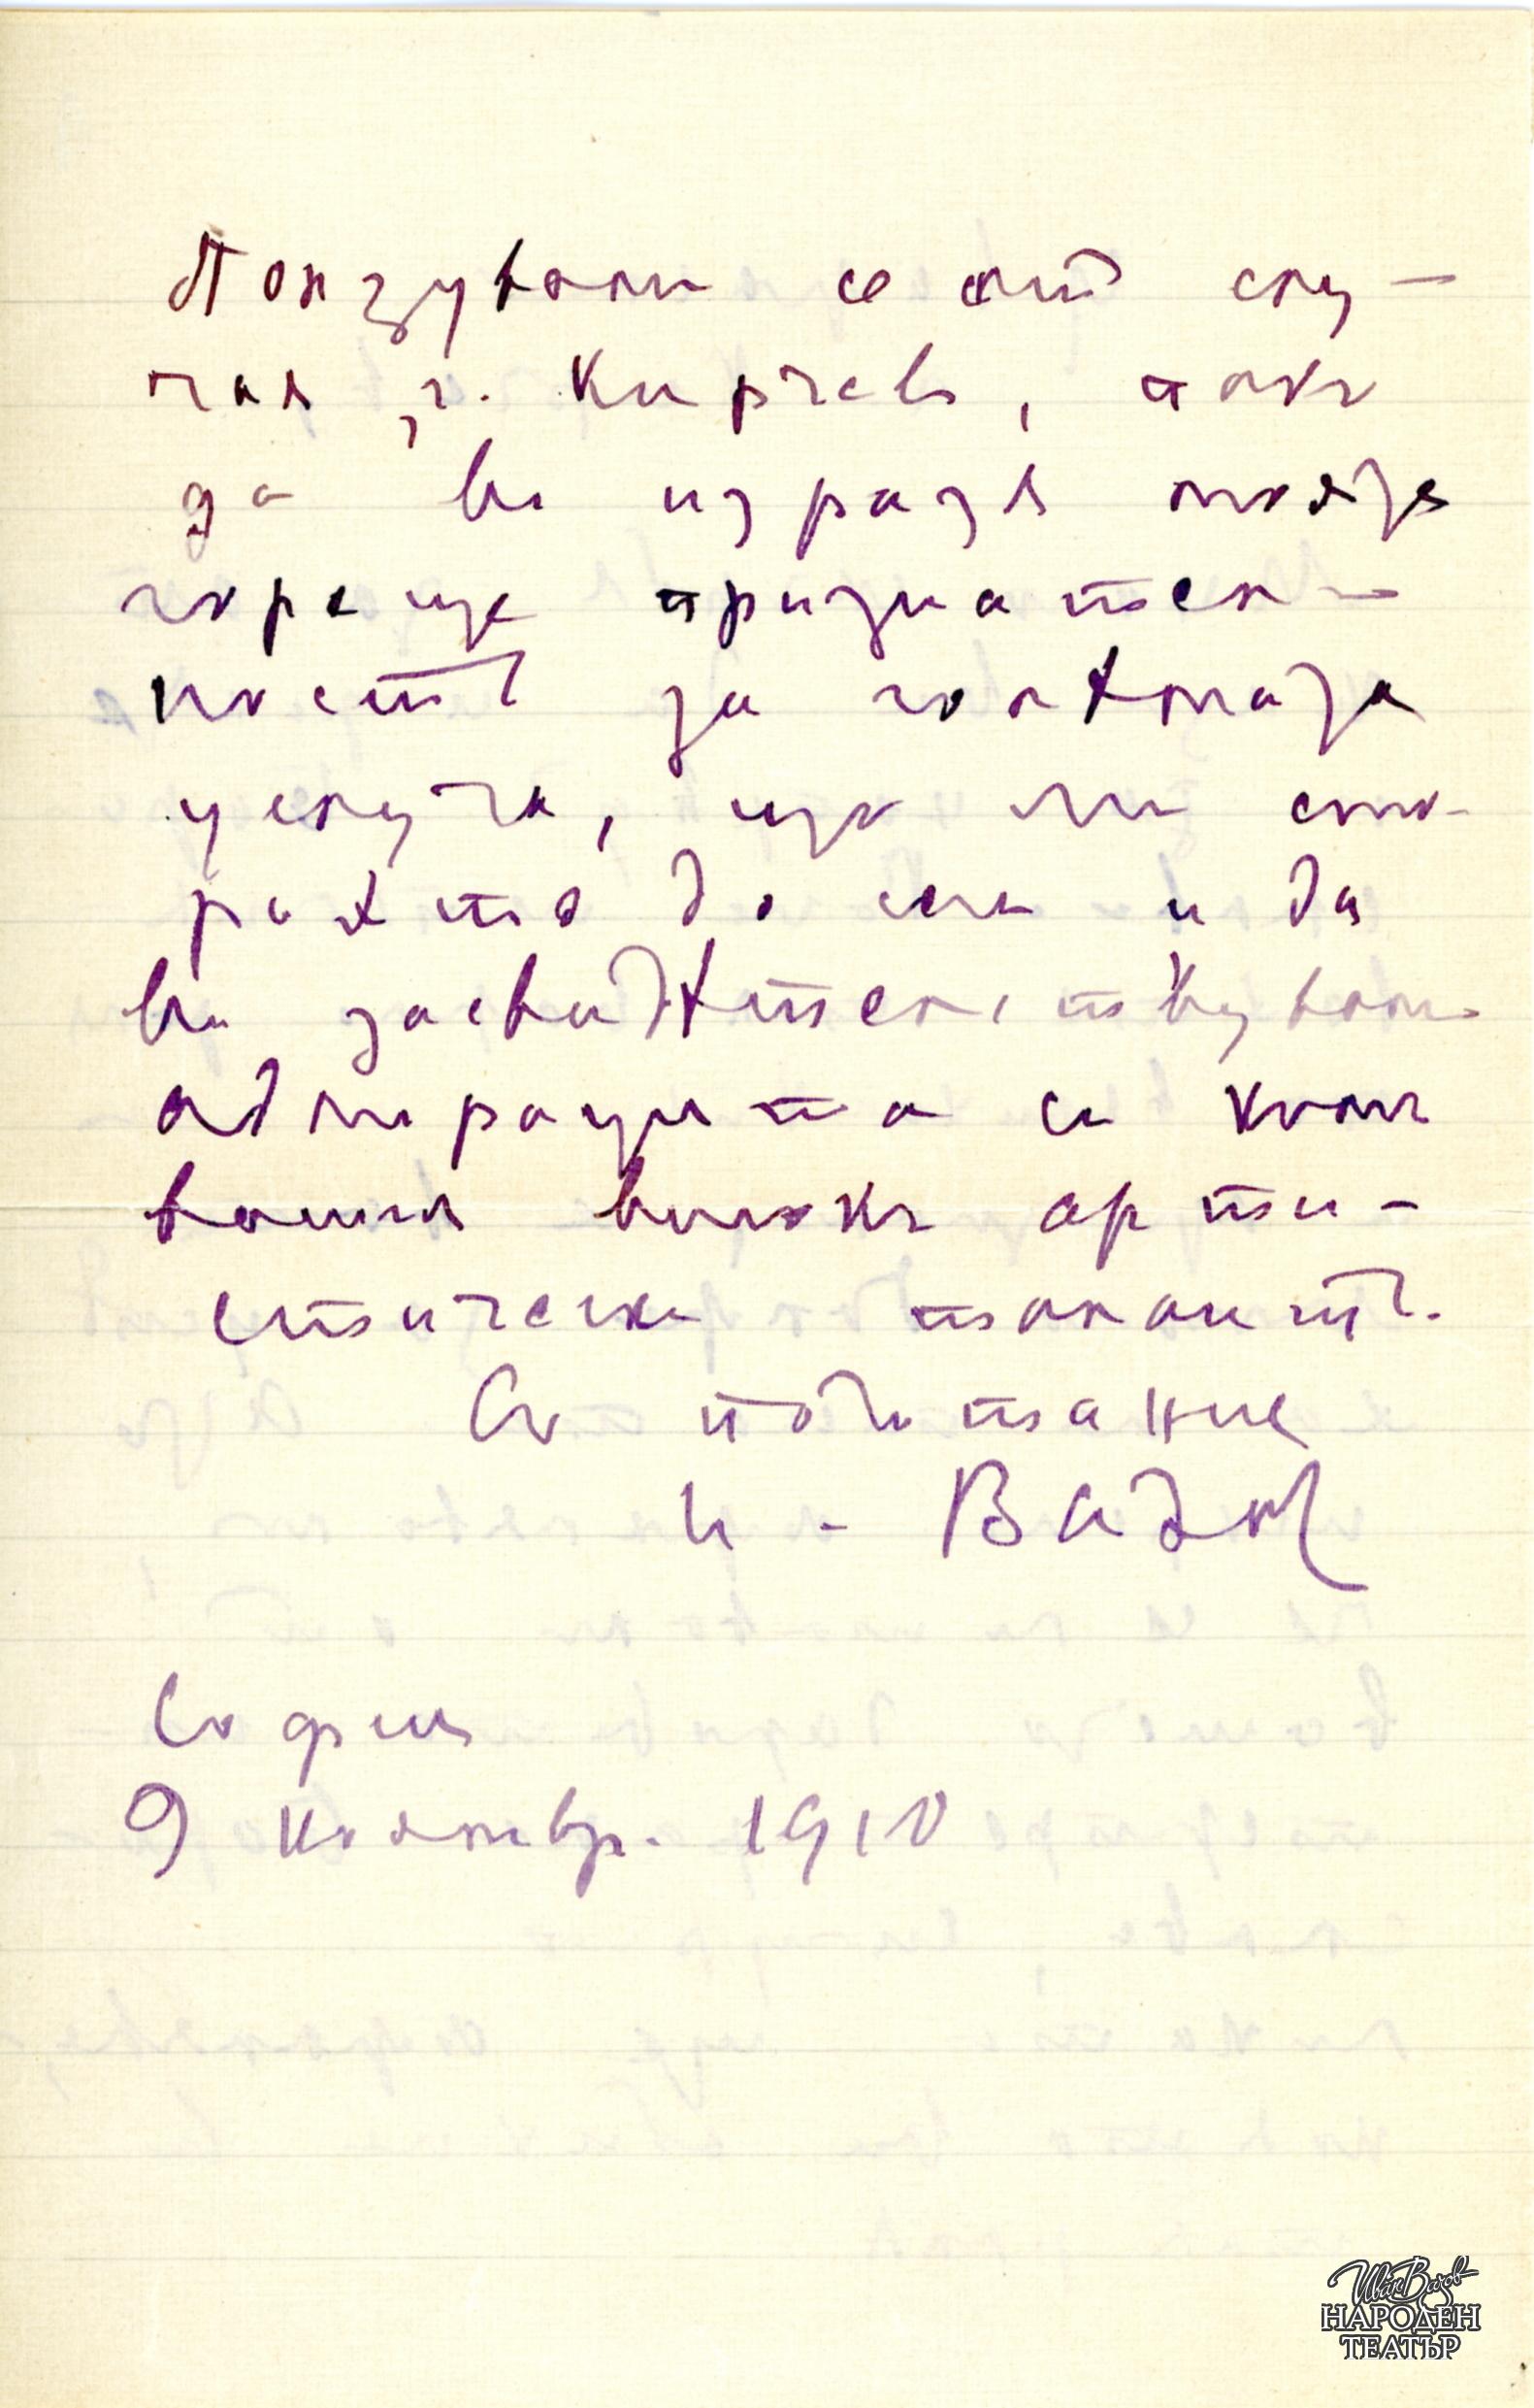 Ползувам се отъ слу-
чая, г. Кирчевъ, пакъ
да ви изразя моята
гореща признател-
ность за голѣмата
услуга, що ми сто-
рихте до сега и да
ви засвидѣтелствувам
адмирацията си къмъ
вашия високъ арти-
стически талантъ.
Съ почитание
И. Вазов
София
9 Ноемвр. 1910
Иван Вазов
НАРОДЕН
ТЕАТЪР